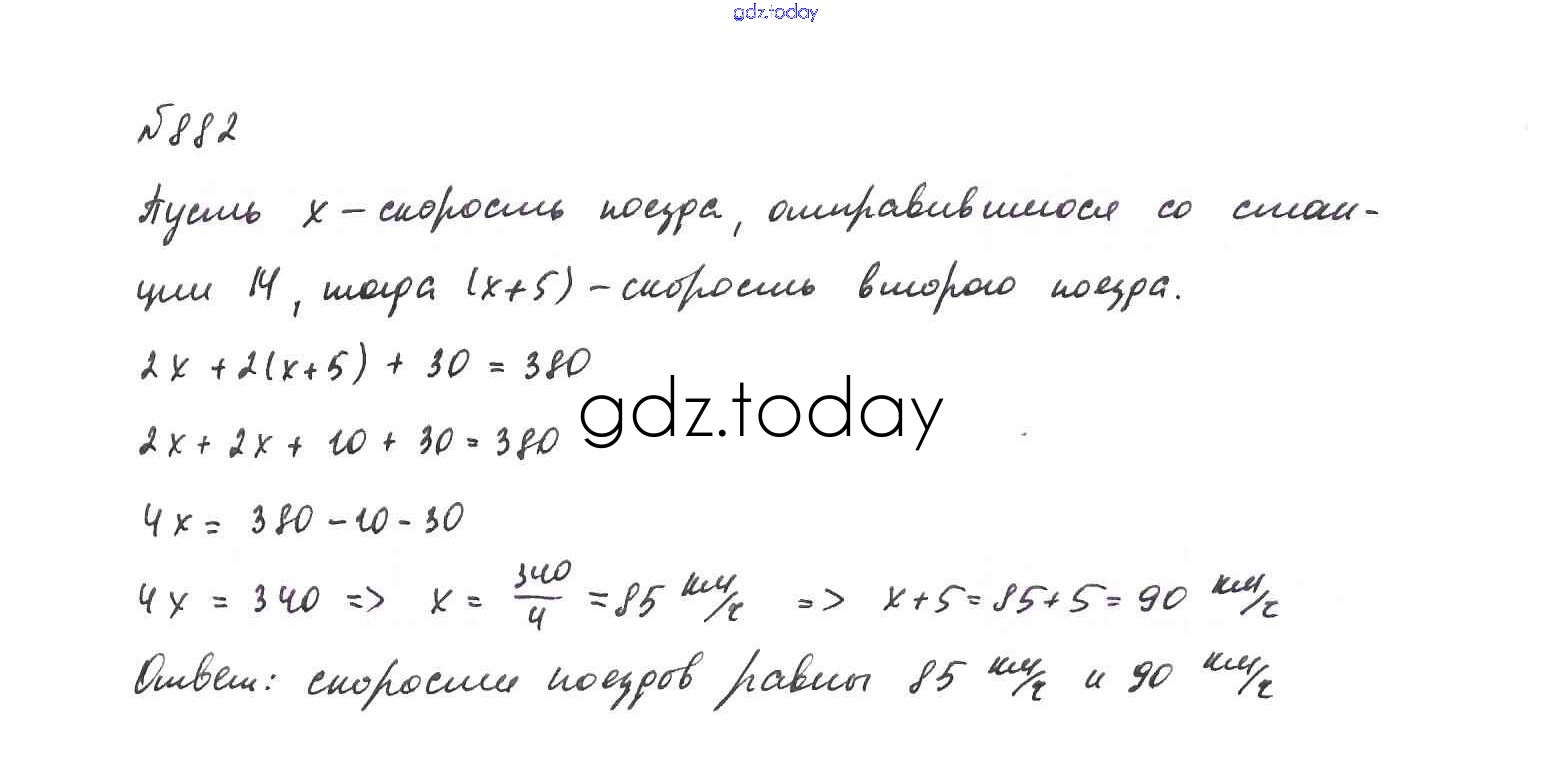 gdz.today
№882
Пусть х – скорость поезда, отправившегося со стан-
ции М, тогда (х+5) – скорость второго поезда.
2х + 2(х+5) + 30 = 380
gdz.today
2х + 2х + 10 + 30 = 380
4х = 380 - 10 - 30
4х = 340 => х = 340/4 = 85 км/ч => х+5 = 85+5 = 90 км/ч
Ответ: скорости поездов равны 85 км/ч и 90 км/ч